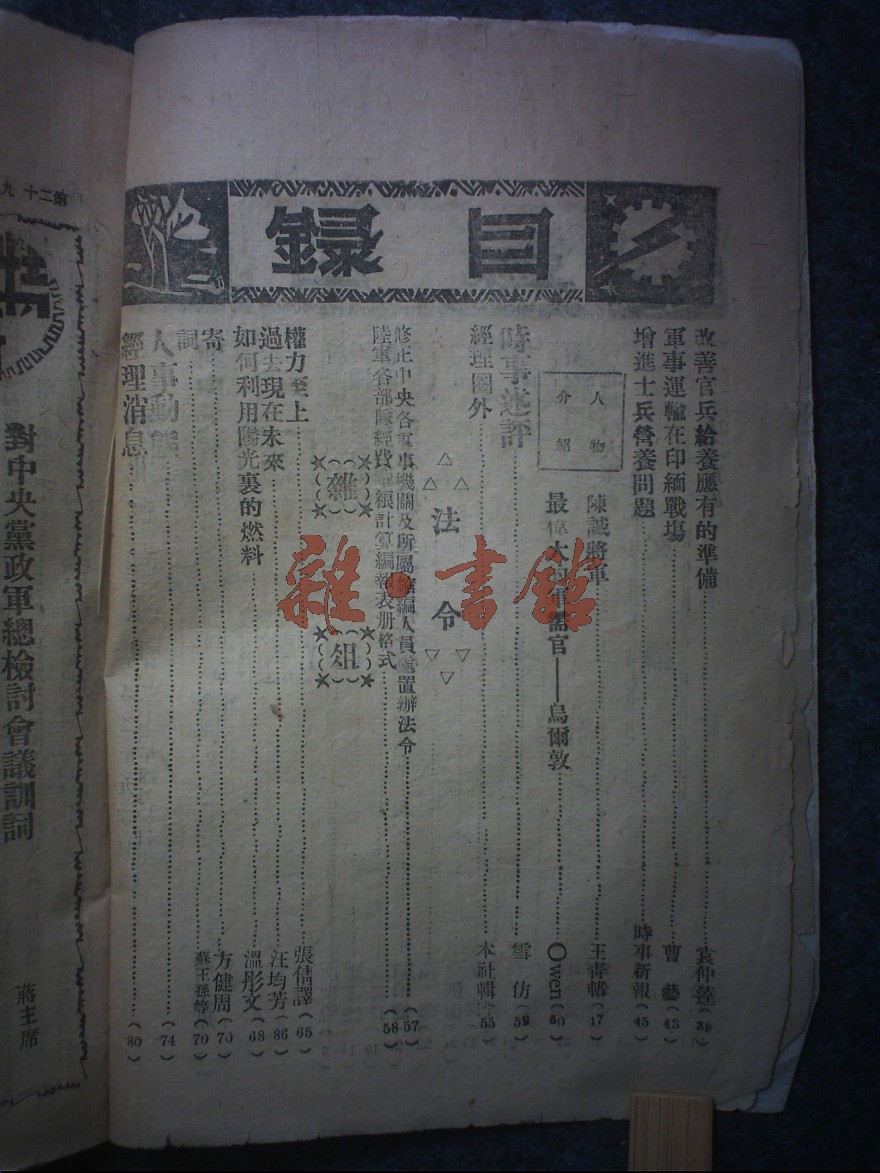 目錄
改善官兵給養應有的準備 袁仲逵(39)
軍事運輸在印緬戰場 曹藝(43)
增進士兵營養問題 時事新報(45)
人物介紹
陳誠將軍 王青幬(47)
最偉大 官——烏爾敦 Owen(50)
時事述評 雪仿(52)
經理圈外 本社輯(55)
法令
修正中央各軍事機關及所屬 編人員處置辦法令(57)
陸軍各部隊經費 計算編報表册格式(58)
雜俎
權力至上 張儔譯(65)
過去現在未來 汪均芳(86)
如何利用陽光裏的燃料 溫彤文(68)
寄 方健周(70)
詞 蘇王孫等(70)
人事動態(74)
經理消息(80)
第二十九
對中央黨政軍總檢討會議訓詞 蔣主席
雜·書館